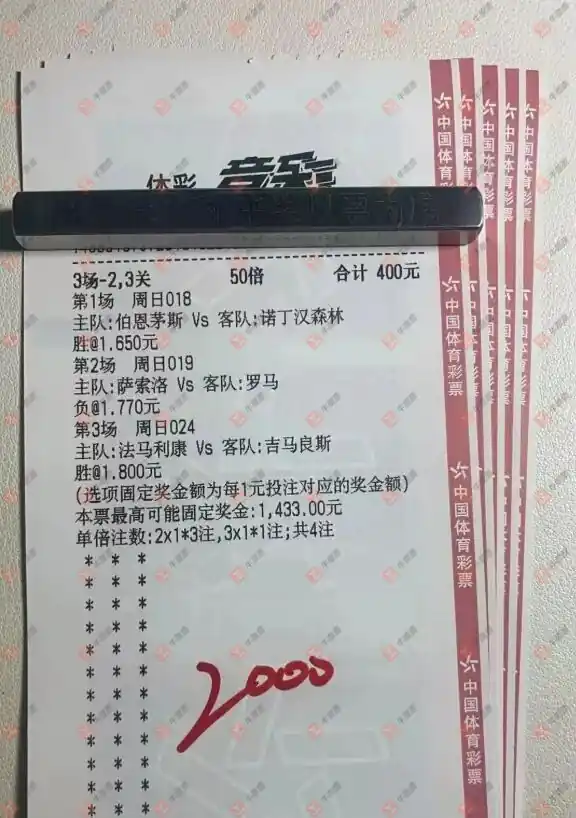 体彩 竞彩
3场-2,3关 50倍 合计 400元
第1场 周日018
主队:伯恩茅斯 Vs 客队:诺丁汉森林
胜@1.650元
第2场 周日019
主队:萨索洛 Vs 客队:罗马
负@1.770元
第3场 周日024
主队:法马利康 Vs 客队:吉马良斯
胜@1.800元
(选项固定奖金额为每1元投注对应的奖金额)
本票最高可能固定奖金:1,433.00元
单倍注数:2x1*3注,3x1*1注;共4注
* * *
* * *
* * *
* * *
* * *
* * *
* * *
* * *
* * *
* * *
* * *
* * *
2000
中国体育彩票
中国体育彩票
中国体育彩票
中国体育彩票